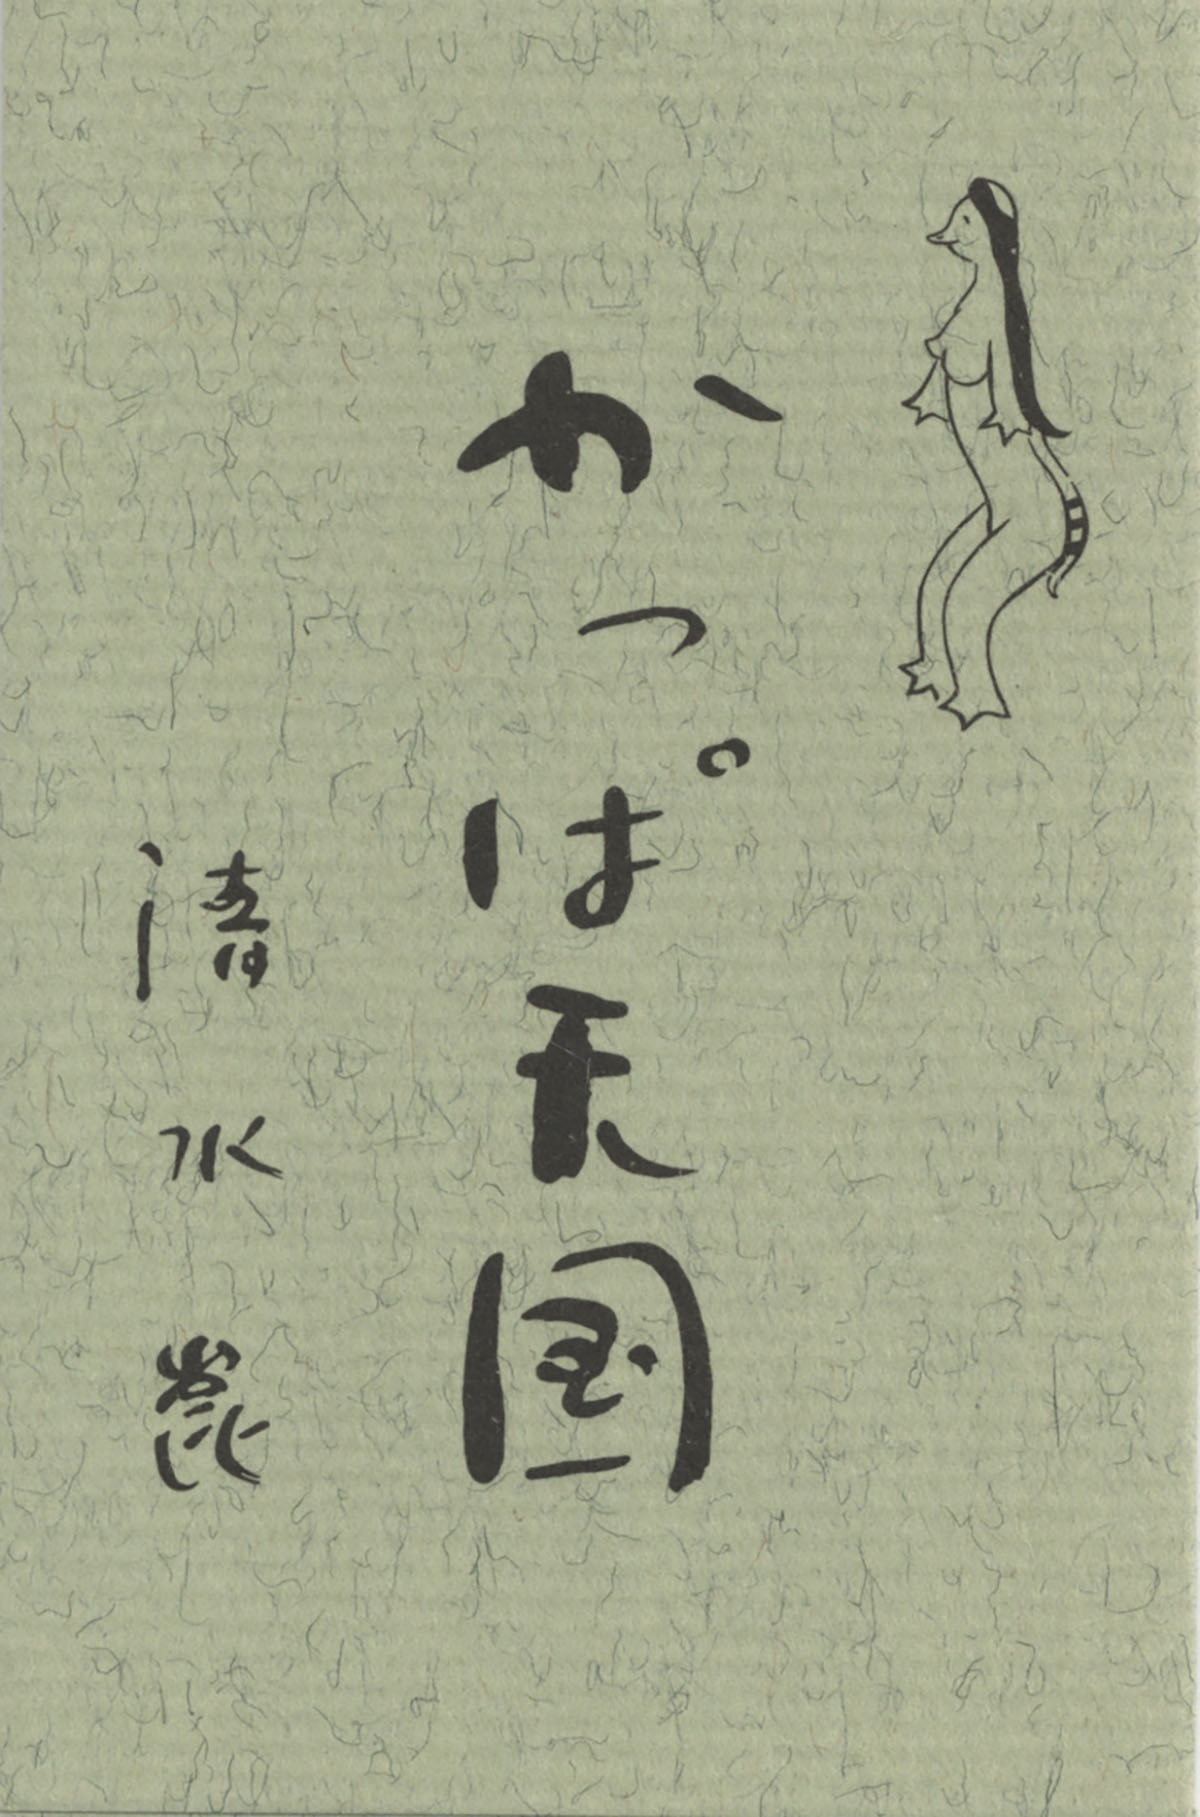 かっぱ天国
清水崑